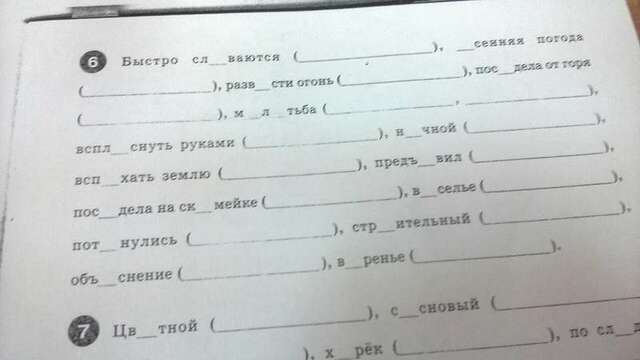 6 Быстро сл__ваются (______________), __сенняя погода
(______________), разв__сти огонь (______________), пос__дела от горя
(______________), м__л__тьба (______________, ______________),
вспл__снуть руками (______________), н__чной (______________),
всп__хать землю (______________), предъ__вил (______________),
пос__дела на ск__мейке (______________), в__селье (______________),
пот__нулись (______________), стр__ительный (______________),
объ__снение (______________), в__ренье (______________).
7 Цв__тной (______________), с__сновый (______________
______________), х__рёк (______________), по сл__д